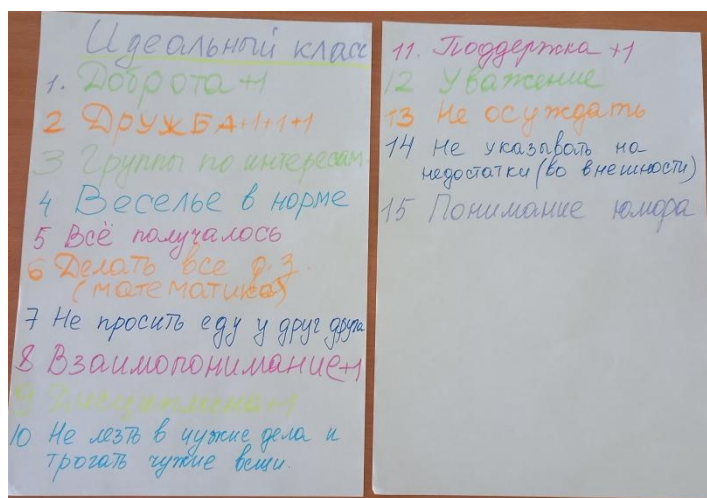 Идеальный класс
1. Доброта +1
2 ДРУЖБА+1+1+1
3 Группы по интересам
4 Веселье в норме
5 Всё получалось
6 Делать все д.з.
(математика)
7 Не просить еду у друг друга
8 Взаимопонимание+1
9 Дисциплина+1
10 Не лезть в чужие дела и
трогать чужие вещи.
11. Поддержка +1
12 Уважение
13 Не осуждать
14 Не указывать на
недостатки (во внешности)
15 Понимание юмора